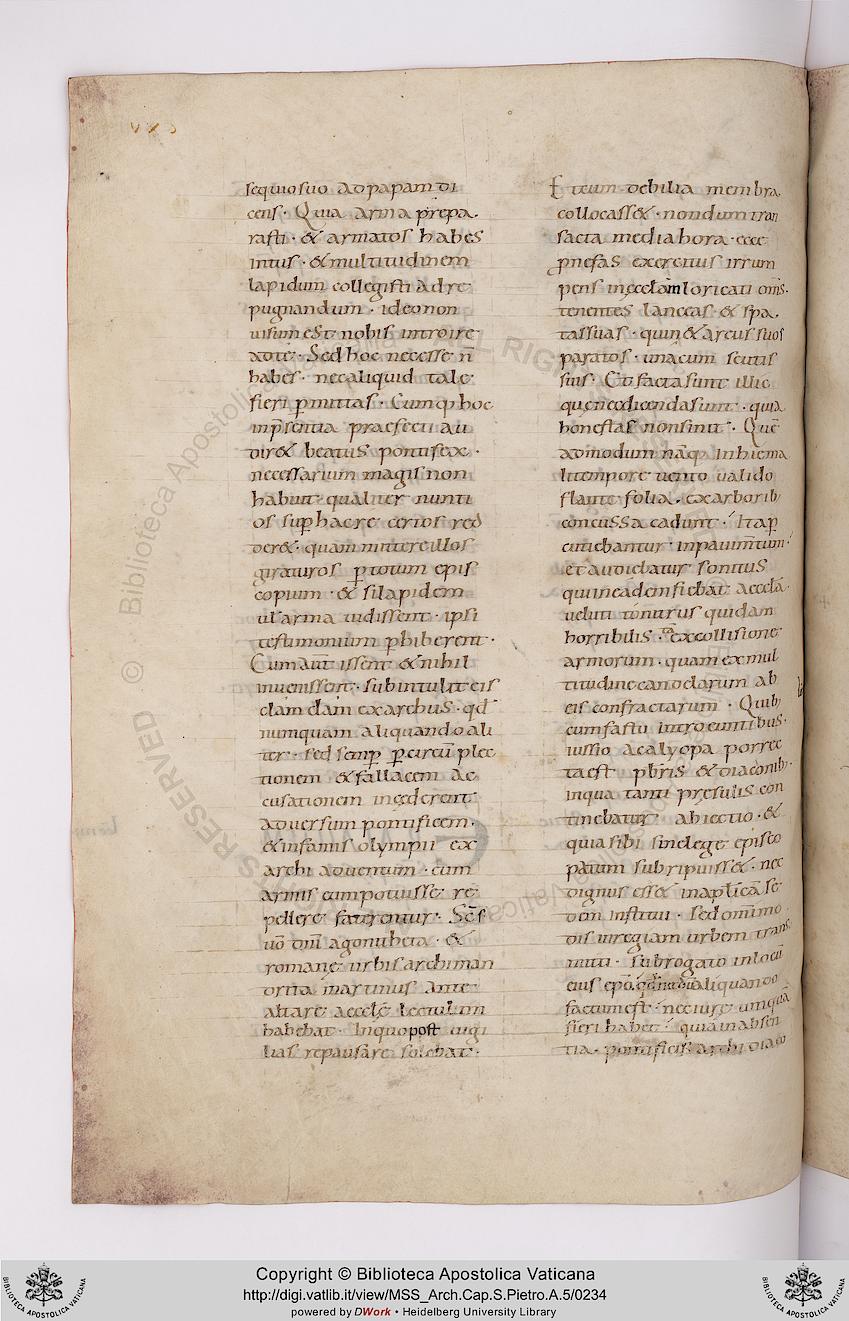 sequio suo ad papam di
cens · Quia arma p̄repa
rasti · & armatos habes
intus · & multitudinem
lapidum collegisti ad re
pugnandum · ideo non
uisum est nobis introire
ad te · Sed hoc necesse n̄
habes · nec aliquid tale
fieri ꝑmittas · Cumq hoc
inp̄sentia praefecti au
diret beatus pontifex ·
necessarium magis non
habuit qualiter nunti
os suꝑ hac re cerios red
deret · quam mittere illos
giraturos ꝑ totum epis
copium · & si lapidem
ul arma uidissent · ipsi
testimonium ꝑhiberent ·
Cum aut̄ issent & nihil
inuenissent · subintulit eis
clam clam exarchus · qd
numquam aliquando ali
ter · sed semꝑ ꝑ circū plec
tionem & fallacem ac
cusationem incederent
aduersum pontificem ·
& infamis olympii ex
archi aduentum · cum
armis eum potuisse re
pellere faterentur · Sc̄s
uō dn̄i agonitheta · &
romanę urbis archiman
drita martinus ante
altare accclę lectulum
habebat · Inquo post uigi
lias repausare solebat ·
Et eum debilia membra
collocasset · nondum tran
sacta media hora · ecce
ꝓnefas exercitus irrum
pens in ęcclam loricati om̄s ·
tenentes lanceas & spa
tas suas · quin & arcus suos
paratos · unacum scutis
suis · Et facta sunt illic
quę nec dicenda sunt · quia
honestas non sinit · Quē
admodum nāq in hiema
li tempore uento ualido
flante folia · ex arborib
concussa cadunt · Ita ꝑ
cutiebantur · in pauimtum ·
et audiebatur sonitus
qui in eadem fiebat accclā ·
ueluti tonitrus quidam
horribilis · ex collisione
armorum · quam ex mul
titudine candelarum ab
eis confractarum · Quib
cum fastu introeuntibus ·
iussio a calyopa porrec
ta est pbris & diaconib ·
inqua tanti pręsulis con
tinebatur abiectio · &
quia sibi sine lege episco
patum subripuisset · nec
dignus esset in aplica se
dem institui · sed omīmo
dis in regiam urbem trans
mitti · subrogato in locū
eius epō · aliquando
factum est · nec iure umquā
fieri habet · quia in absen
tia · pontificis archi diaco
© Biblioteca Apostolica Vaticana
ALL RIGHTS RESERVED
Copyright © Biblioteca Apostolica Vaticana
http://digi.vatlib.it/view/MSS_Arch.Cap.S.Pietro.A.5/0234
powered by DWork • Heidelberg University Library
BIBLIOTECA APOSTOLICA VATICANA
BIBLIOTECA APOSTOLICA VATICANA